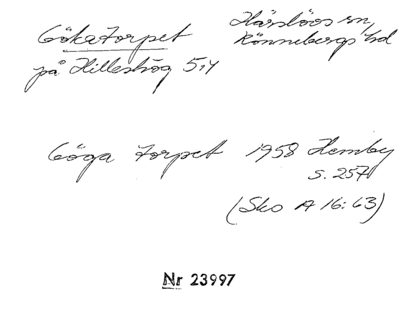 Gökatorpet
Härslövs sn,
Rönnebergs hd
på Hilleshög 5:4
Göga torpet 1958 Hemby
s. 257
(Sko A 16:63)
Nr 23997